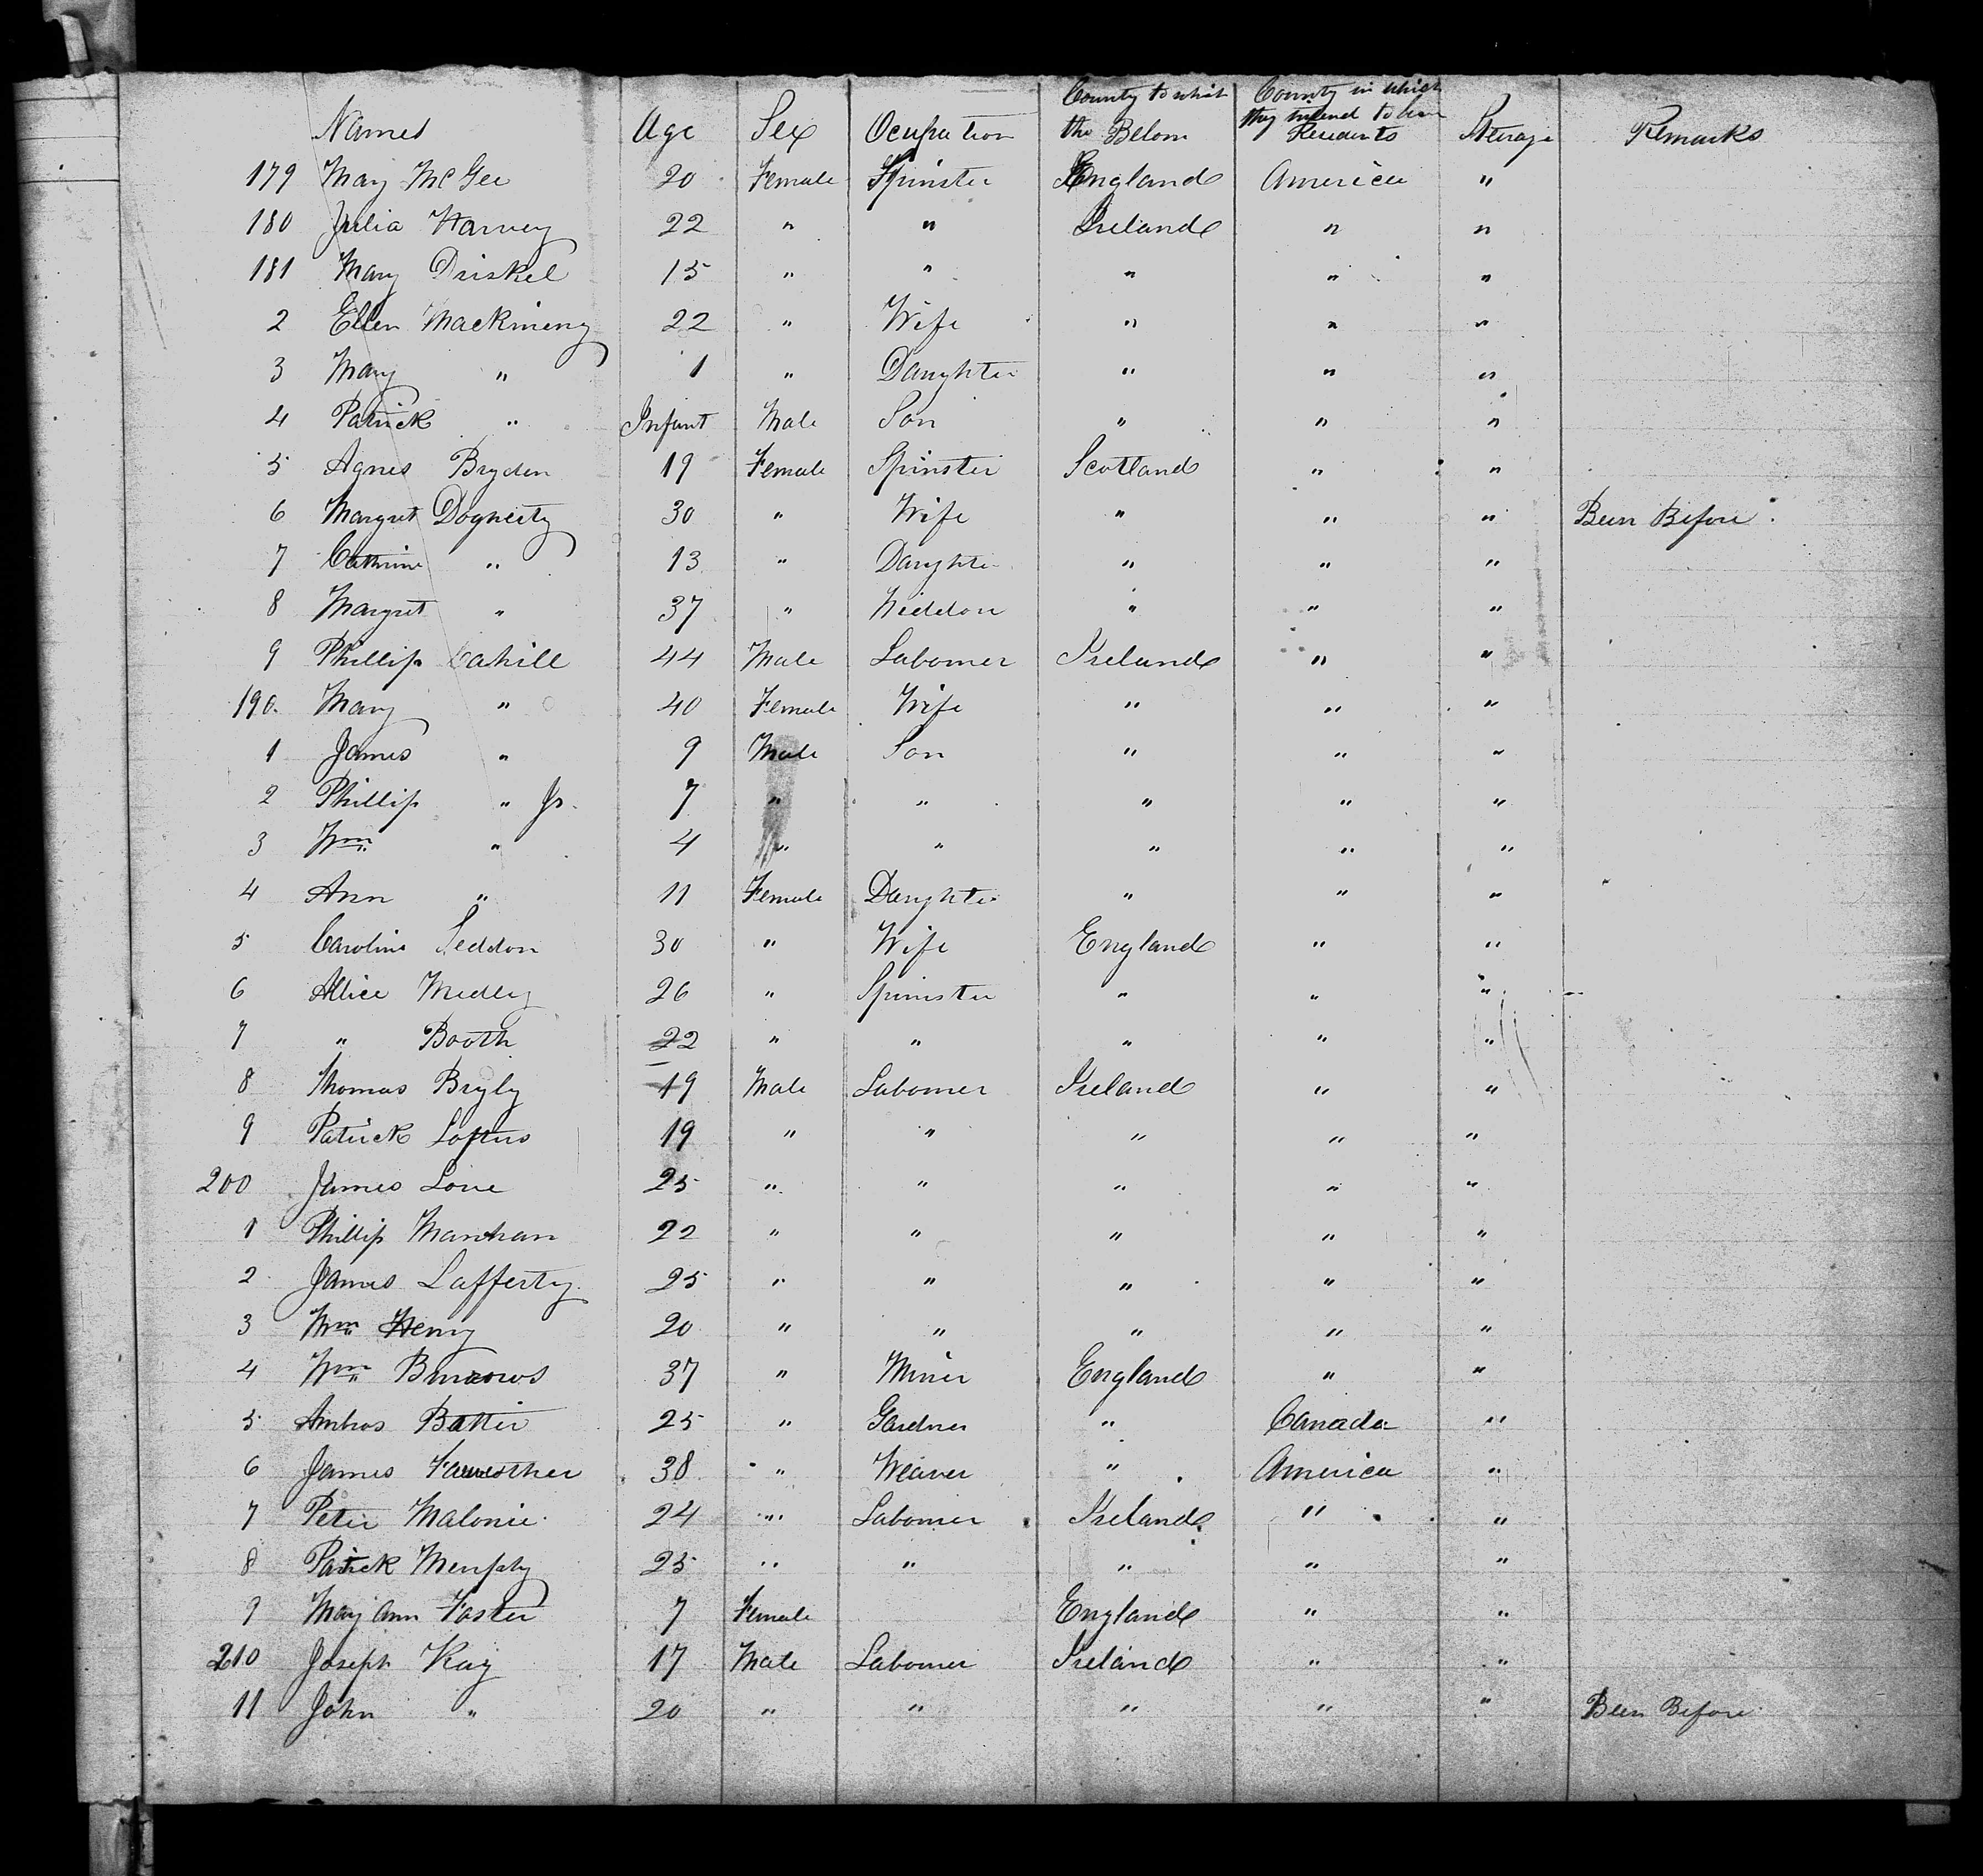 Names Age Sex Ocupation County to which the Belom County in which they intend to be Residents Sterage Remarks
179 Mary McGee 20 Female Spinster England America "
180 Julia Harvey 22 " " Ireland " "
181 Mary Driskel 15 " " " " "
2 Ellen Mackmeny 22 " Wife " " "
3 Mary " 1 " Daughter " " "
4 Patrick " Infant Male Son " " "
5 Agnes Bryden 19 Female Spinster Scotland " "
6 Margret Dogherty 30 " Wife " " " Been Before
7 Cathrine " 13 " Daughter " " "
8 Margret " 37 " Widdow " " "
9 Phillip Cahill 44 Male Labouer Ireland " "
190 Mary " 40 Female Wife " " "
1 James " 9 Male Son " " "
2 Phillip " Jr. 7 " " " " "
3 Wm " 4 " " " " "
4 Ann " 11 Female Daughter " " "
5 Caroline Seddon 30 " Wife England " "
6 Allice Medley 26 " Spinister " " "
7 " Booth 22 " " " " "
8 Thomas Bryly 19 Male Labouer Ireland " "
9 Patrick Loftus 19 " " " " "
200 James Love 25 " " " " "
1 Phillip Manhan 22 " " " " "
2 James Lafferty 25 " " " " "
3 Wm Henry 20 " " " " "
4 Wm Burrows 37 " Miner England " "
5 Ambros Batter 25 " Gardner " Canada "
6 James 38 " Weaver " America "
7 Peter Malonie 24 " Labouer Ireland " "
8 Patrick Murphy 25 " " " " "
9 Mary Ann Foster 7 Female England " "
210 Joseph Kay 17 Male Labouer Ireland " "
11 John " 20 " " " " " Been Before